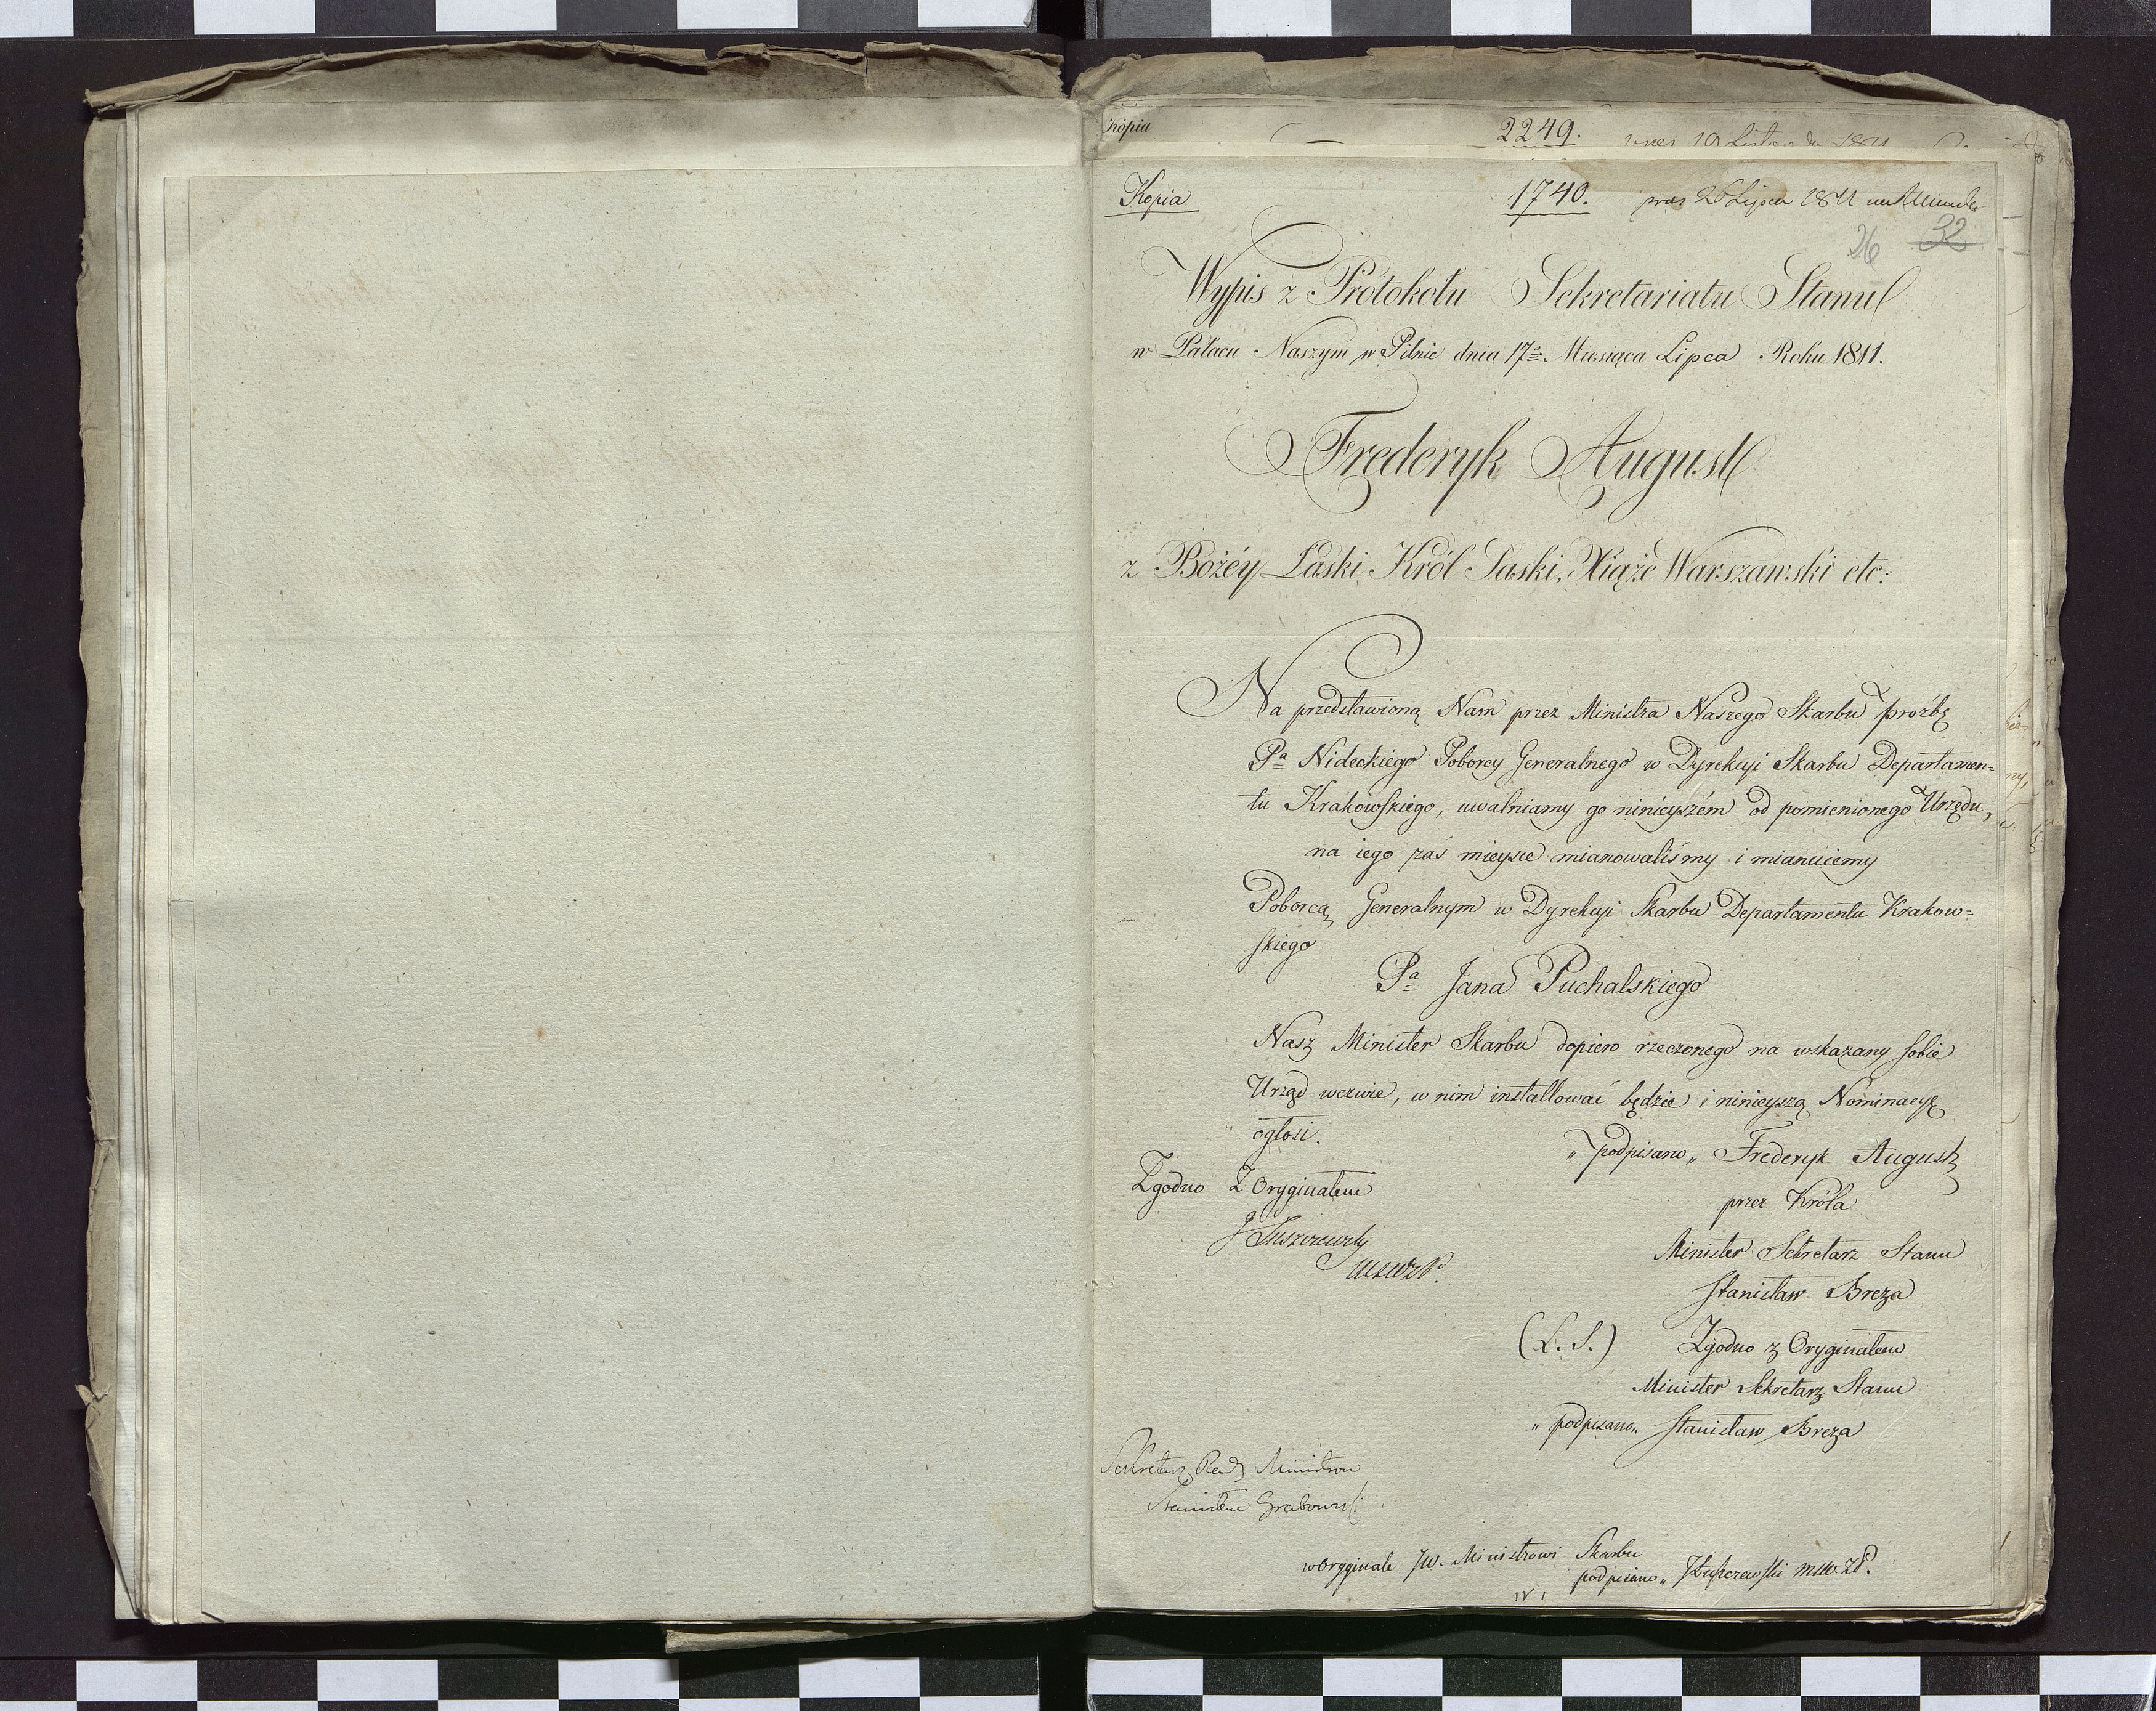 Kopia
2249.
Kopia
1740. 26 Lipca 1811
26 32
Wypis z Protokołu Sekretariatu Stanu
w Pałacu Naszym w Pilnic dnia 17º. Miesiąca Lipca Roku 1811.
Frederyk August
z Bożéy Łaski Król Saski, Xiąże Warszawski etc:
Na przedstawioną Nam przez Ministra Naszego Skarbu prozbę
Pª Nideckiego Poborcy Generalnego w Dyrekcyi Skarbu Departamen=
tu Krakowskiego, uwalniamy go ninieyszém od pomienionego Urzędu,
na iego zaś mieysce mianowaliśmy i mianuiemy
Poborcą Generalnym w Dyrekcyi Skarbu Departamentu Krakow=
skiego
Pª Jana Puchalskiego
Nasz Minister Skarbu dopiero rzeczonego na wskazany sobie
Urząd wezwie, w nim installować będzie i ninieyszą Nominacyę
ogłosi.
„podpisano„ Frederyk August
przez Króla
Minister Sekretarz Stanu
Stanisław Breza
(L. S.) Zgodno z Oryginałem
Minister Sekretarz Stanu
„podpisano„ Stanisław Breza
Zgodno Z Oryginałem
Sekretarz Rady Ministrów
Stanisław Grabowski
w Oryginale JW. Ministrowi Skarbu
podpisano„ JŁuszczewski